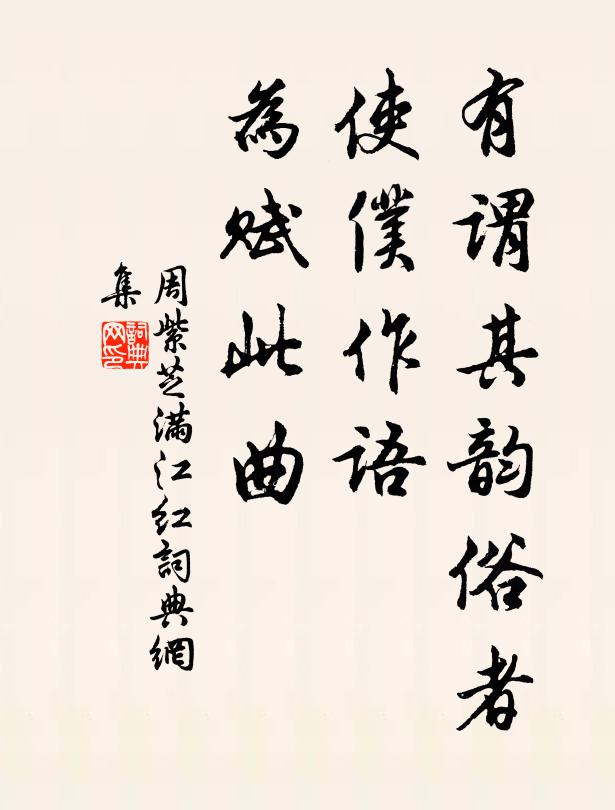 有謂其韵俗者
使僕作語
為賦此曲
周紫芝滿江红詞典網
集
詞典
网印